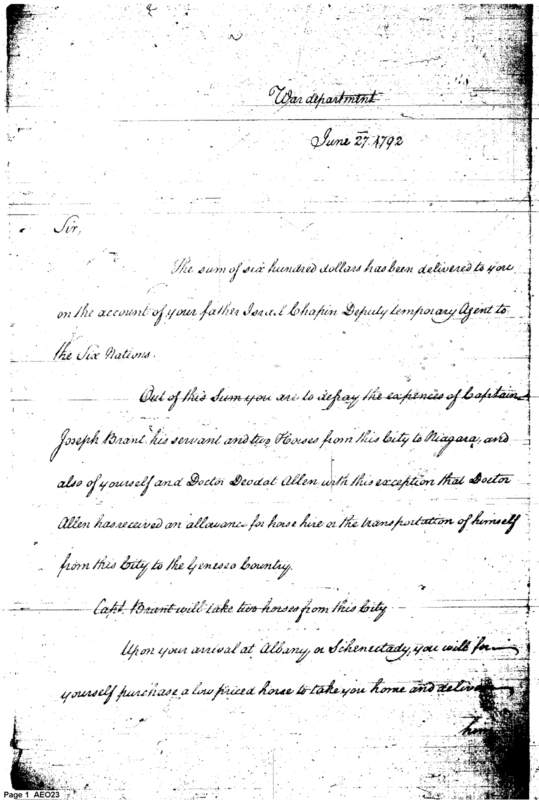 War department
June 27. 1792
Sir,
The sum of six hundred dollars has been delivered to you
on the account of your father Israel Chapin Deputy temporary Agent to
the Six Nations.
Out of this Sum you are to defray the expences of Captain
Joseph Brant his servant and two Horses from this City to Niagara, and
also of yourself and Doctor Deodat Allen with this exception that Doctor
Allen has received an allowance for horse hire or the transportation of himself
from this City to the Genesso Country.
Capt. Brant will take two horses from this City
Upon your arrival at Albany, or Schenectady, you will for
yourself purchase a low priced horse to take you home and deliver
Page 1 AEO23